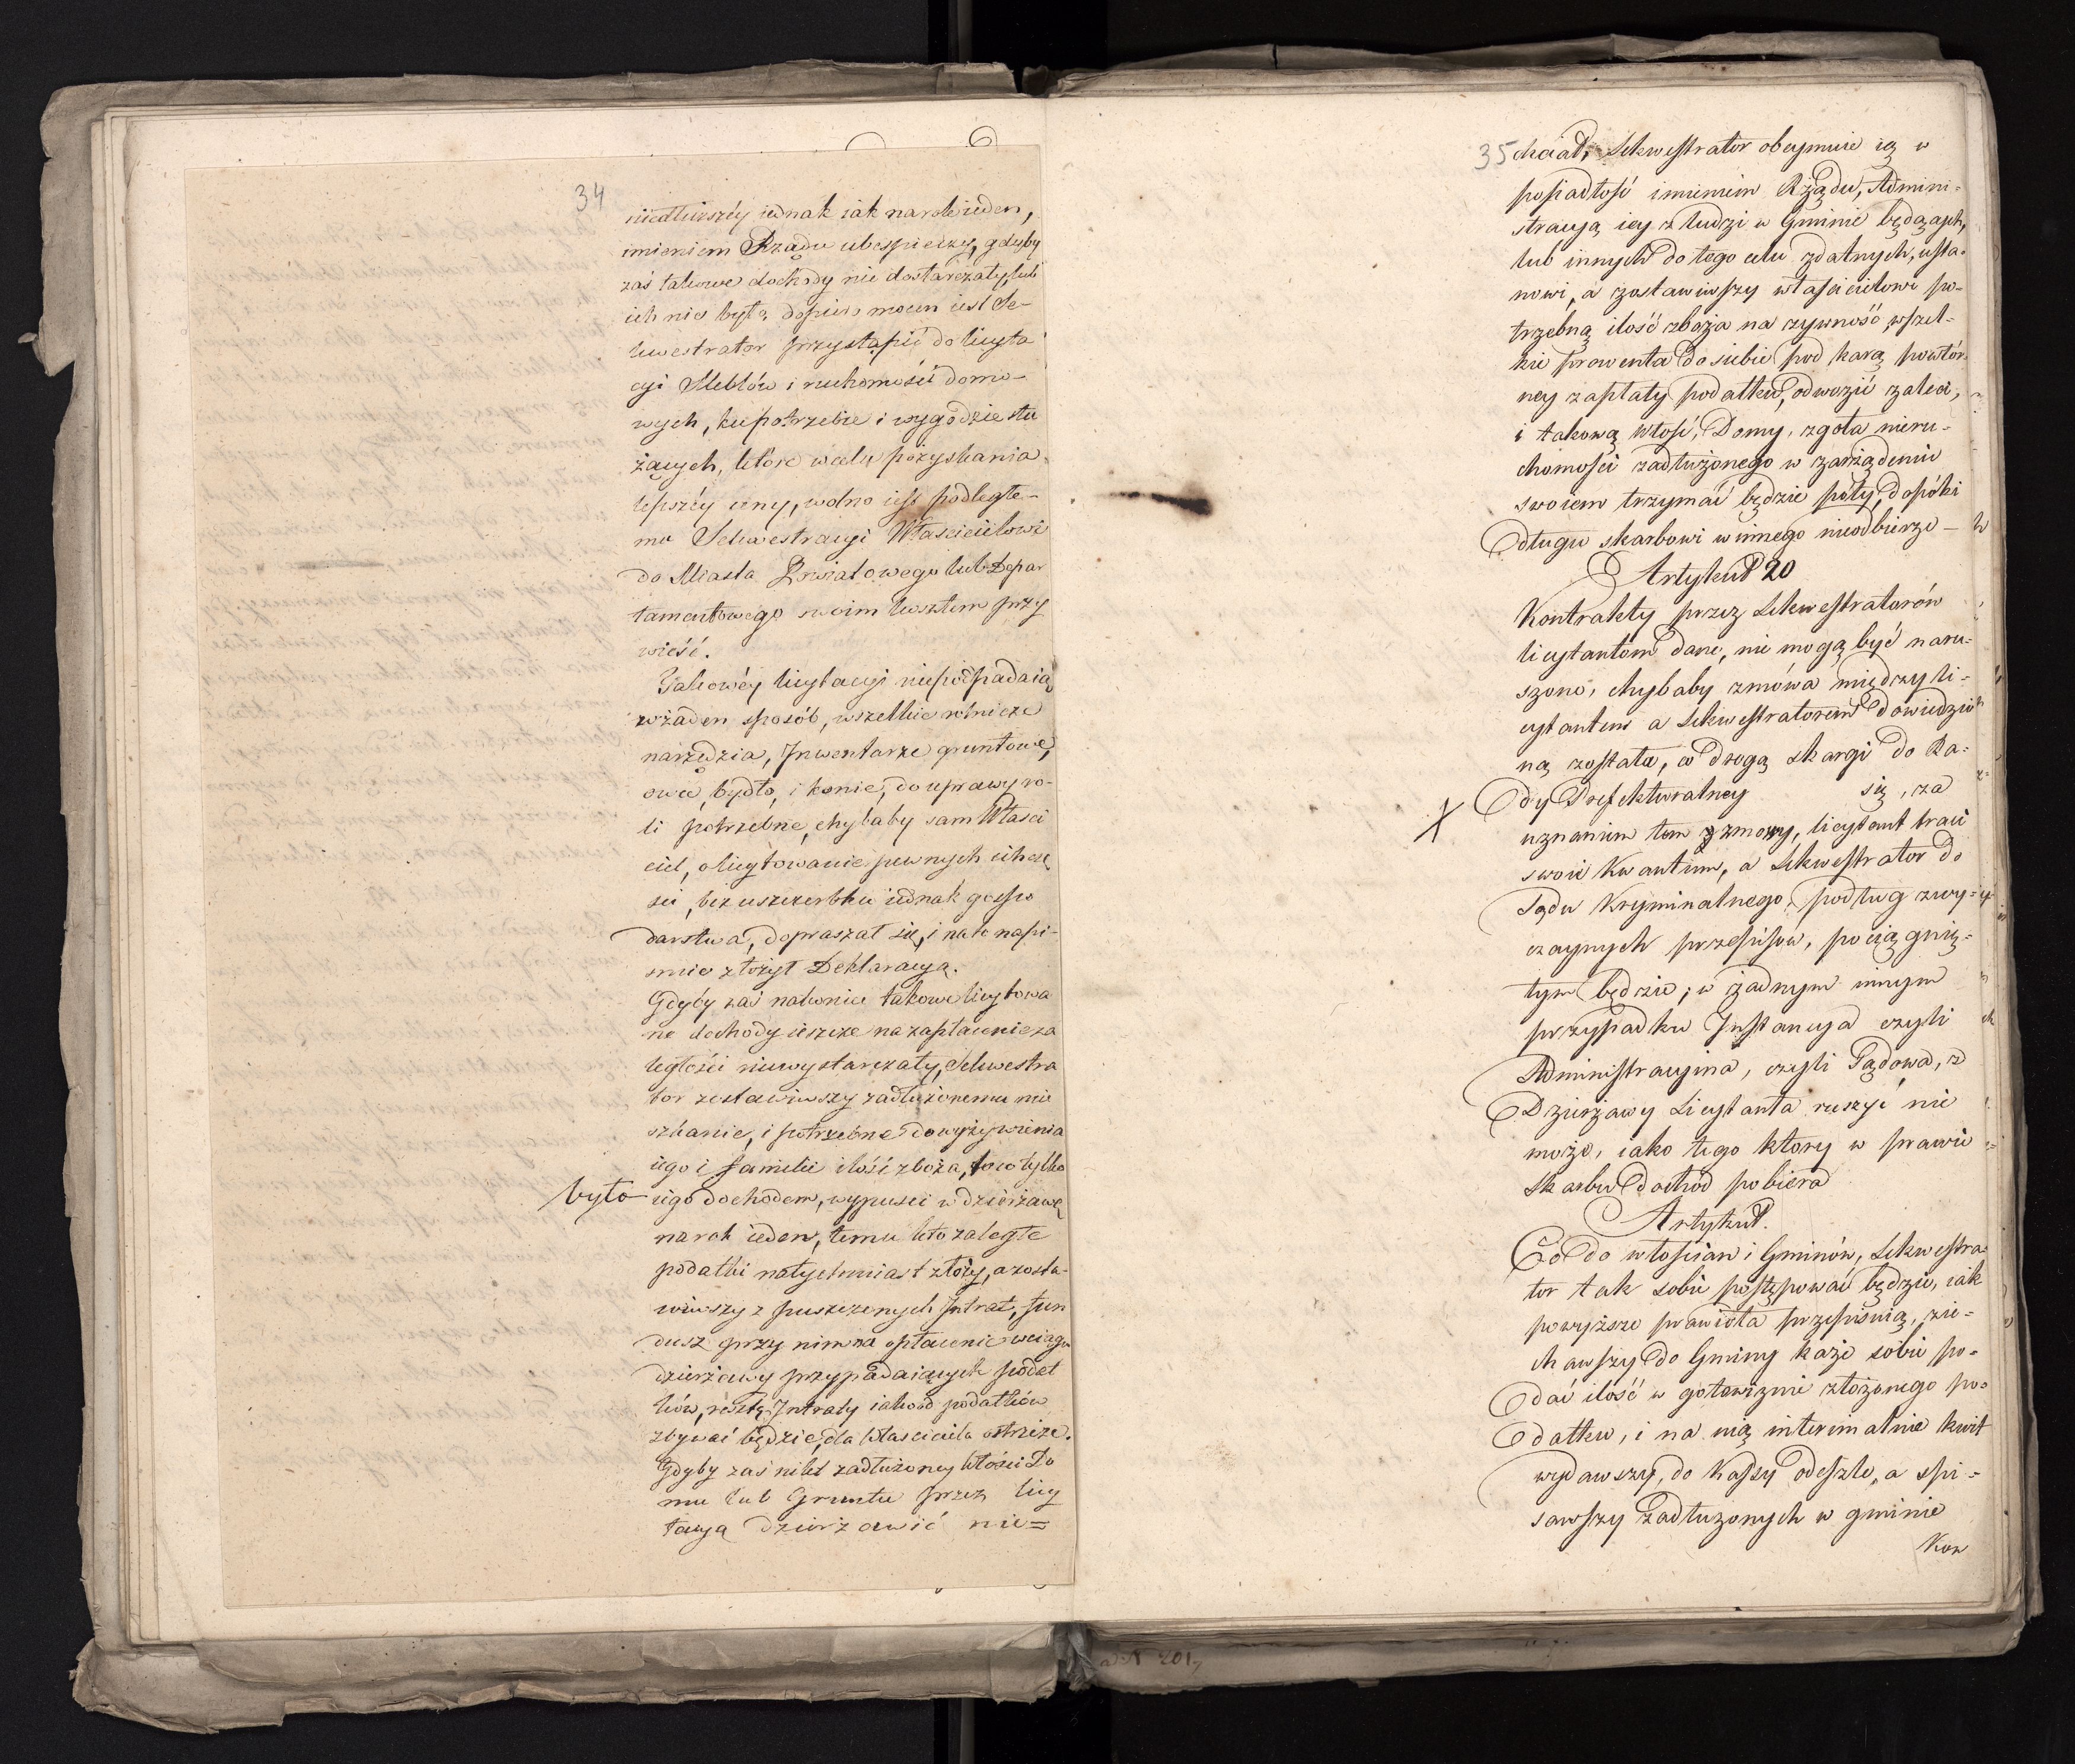 34
niedłuższéy iednak iak na rok ieden,
imieniem Rządu ubespieczy, gdyby
zaś takowe dochody nie dostarczały, lub
ich nie było, dopiero mocen iest Se-
kwestrator przystąpić do licyta
cyi Meblów i ruchomości domo-
wych, ku potrzebie i wygodzie słu
żących, które w celu pozyskania
lepszéy ceny, wolno iest podległe-
mu Sekwestracyi Właścicielowi
do Miasta Powiatowego lub Depar
tamentowego swoim kosztem przy
wieść.
Takowéy licytacyi niepodpadaią
w żaden sposób, wszelkie rolnicze
narzędzia, Inwentarze gruntowe,
owce, bydło, i konie, do uprawy ro-
li potrzebne, chybaby sam Właści
ciel, o licytowanie pewnych ich czę
ści, bez uszczerbku iednak gospo
darstwa, dopraszał się, i na to napi-
śmie złożył Deklaracyą.
Gdyby zaś nakoniec takowe licytowa
ne dochody ieszcze na zapłacenie za
ległości niewystarczały, Sekwestra
tor zostawiwszy zadłużonemu mie
szkanie, i potrzebne do wyżywienia
iego i familii ilość zboża, to co tylko
było iego dochodem, wypuści w dzierżawę
na rok ieden, temu kto zaległe
podatki natychmiast złoży, a zosta-
wiwszy z puszczonych Intrat, fun
dusz przy nim na opłacenie w ciągu
dzierżawy przypadaiących podat
ków, resztę Intraty iako od podatków
zbywać będzie, dla Właściciela ostrzeże.
Gdyby zaś nikt zadłużoney Włości Do
mu lub Gruntu przez licy
tacyą dzierżawić nie=
35 chciał, Sekwestrator obeymuie ią w
posiadłość imieniem Rządu, Admini-
stracyą iey z ludzi w Gminie będących,
lub innych do tego celu zdatnych, usta-
nowi, a zostawiwszy właścicielowi po-
trzebną ilość zboża na żywność, wszel-
kie prowenta do siebie pod karą powtór-
ney zapłaty podatków, odwozić zaleci,
i takową Włość, Domy, zgoła nieru-
chomości zadłużonego w zarządzeniu
swoiem trzymać będzie póty, dopóki
długu skarbowi winnego nieodbierze –
Artykuł 20
Kontrakty przez Sekwestratorów
licytantom dane, nie mogą być naru-
szone, chybaby zmówa między li-
cytantem a Sekwestratorem dowiedzio
ną została, co drogą skargi do Ra-
dy Prefekturalney się, za
X
uznaniem tem zmowy, licytant traci
swoie Kwantum, a Sekwestrator do
Sądu Kryminalnego, podług zwy-
czaynych przepisów, pociągnię-
tym będzie; w żadnym innym
przypadku Instancya czyli
Administracyina, czyli Sądowa, z
Dzierżawy Licytanta ruszyć nie
może, iako tego ktory w prawie
Skarbu dochód pobiera
Artykuł.
Co do włościan i Gminów, Sekwestra-
tor tak sobie postępować będzie, iak
powyższe prawidła przepisuią, zie-
chawszy do Gminy każe sobie po-
dać ilość w gotowiznie złożonego po-
datku, i na nią interimalnie kwit
wydawszy, do Kassy odeszle, a spi-
sawszy Zadłużonych w gminie
Kon